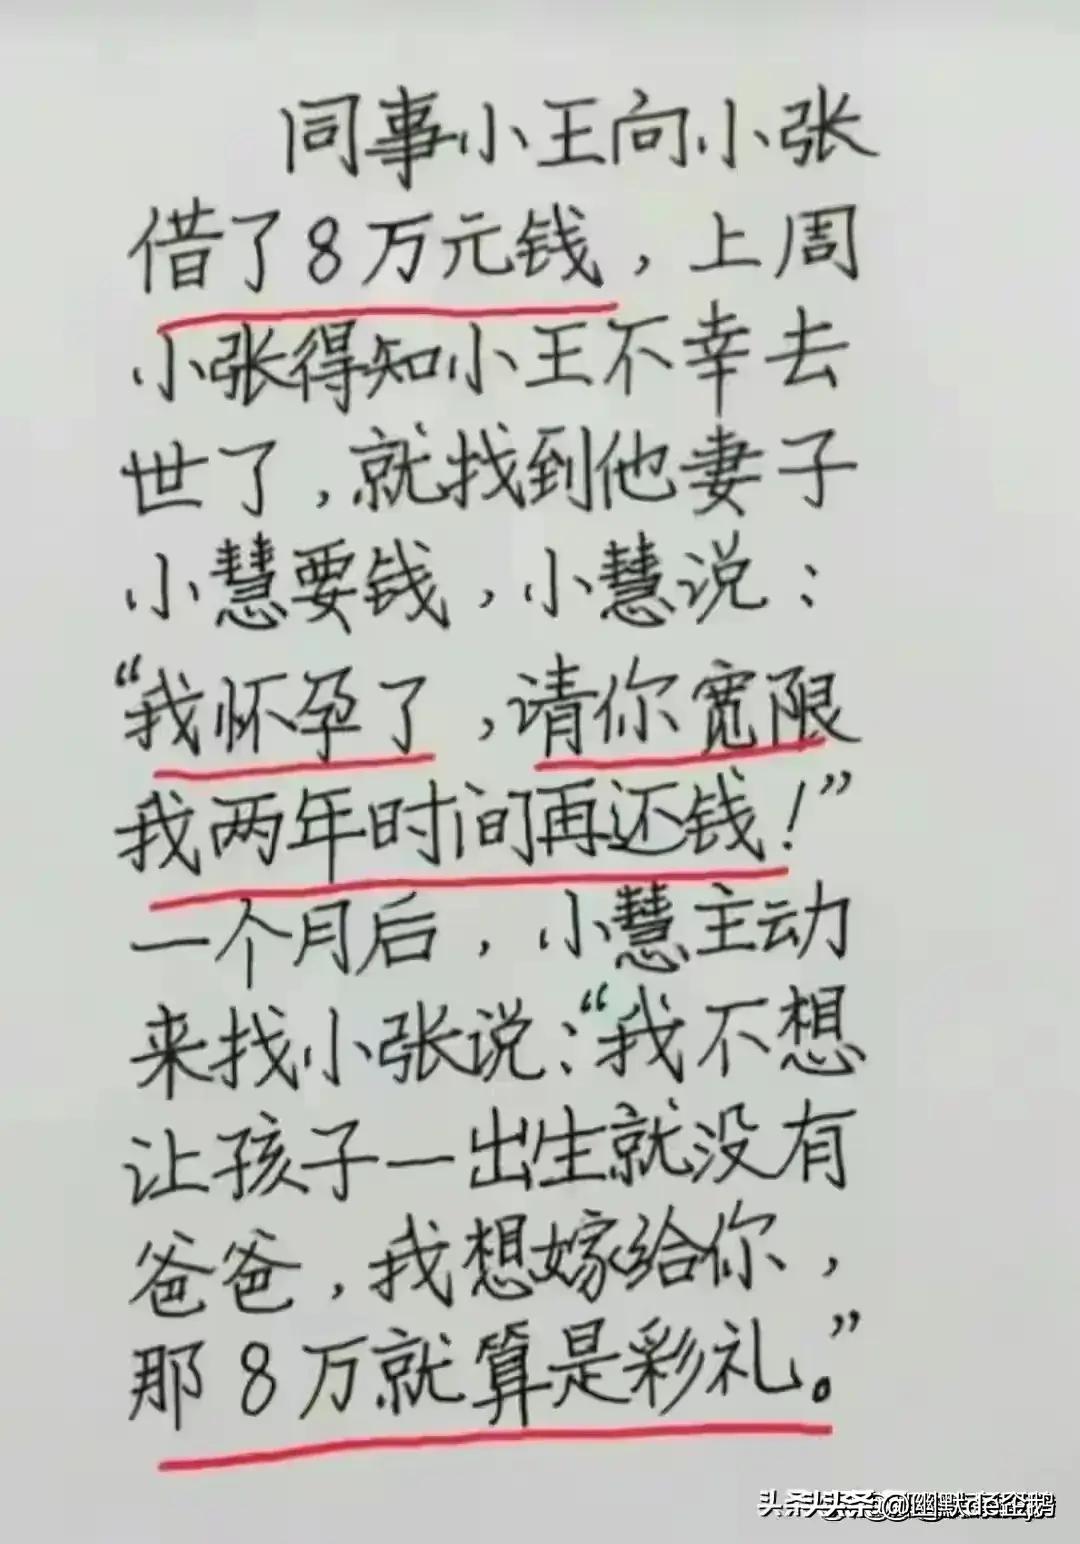 同事小王向小张
借了8万元钱，上周
小张得知小王不幸去
世了，就找到他妻子
小慧要钱，小慧说：
“我怀孕了，请你宽限
我两年时间再还钱！”
一个月后，小慧主动
来找小张说：“我不想
让孩子一出生就没有
爸爸，我想嫁给你，
那8万就算是彩礼。”
头条 @幽默de企鹅